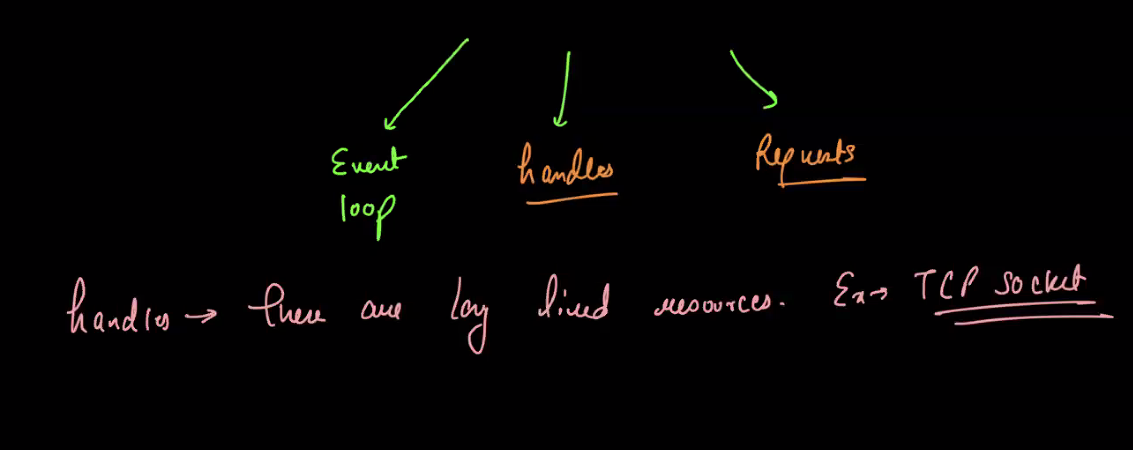 Event handles Requests
loop
handles → there are long lived resources. Ex → TCP socket